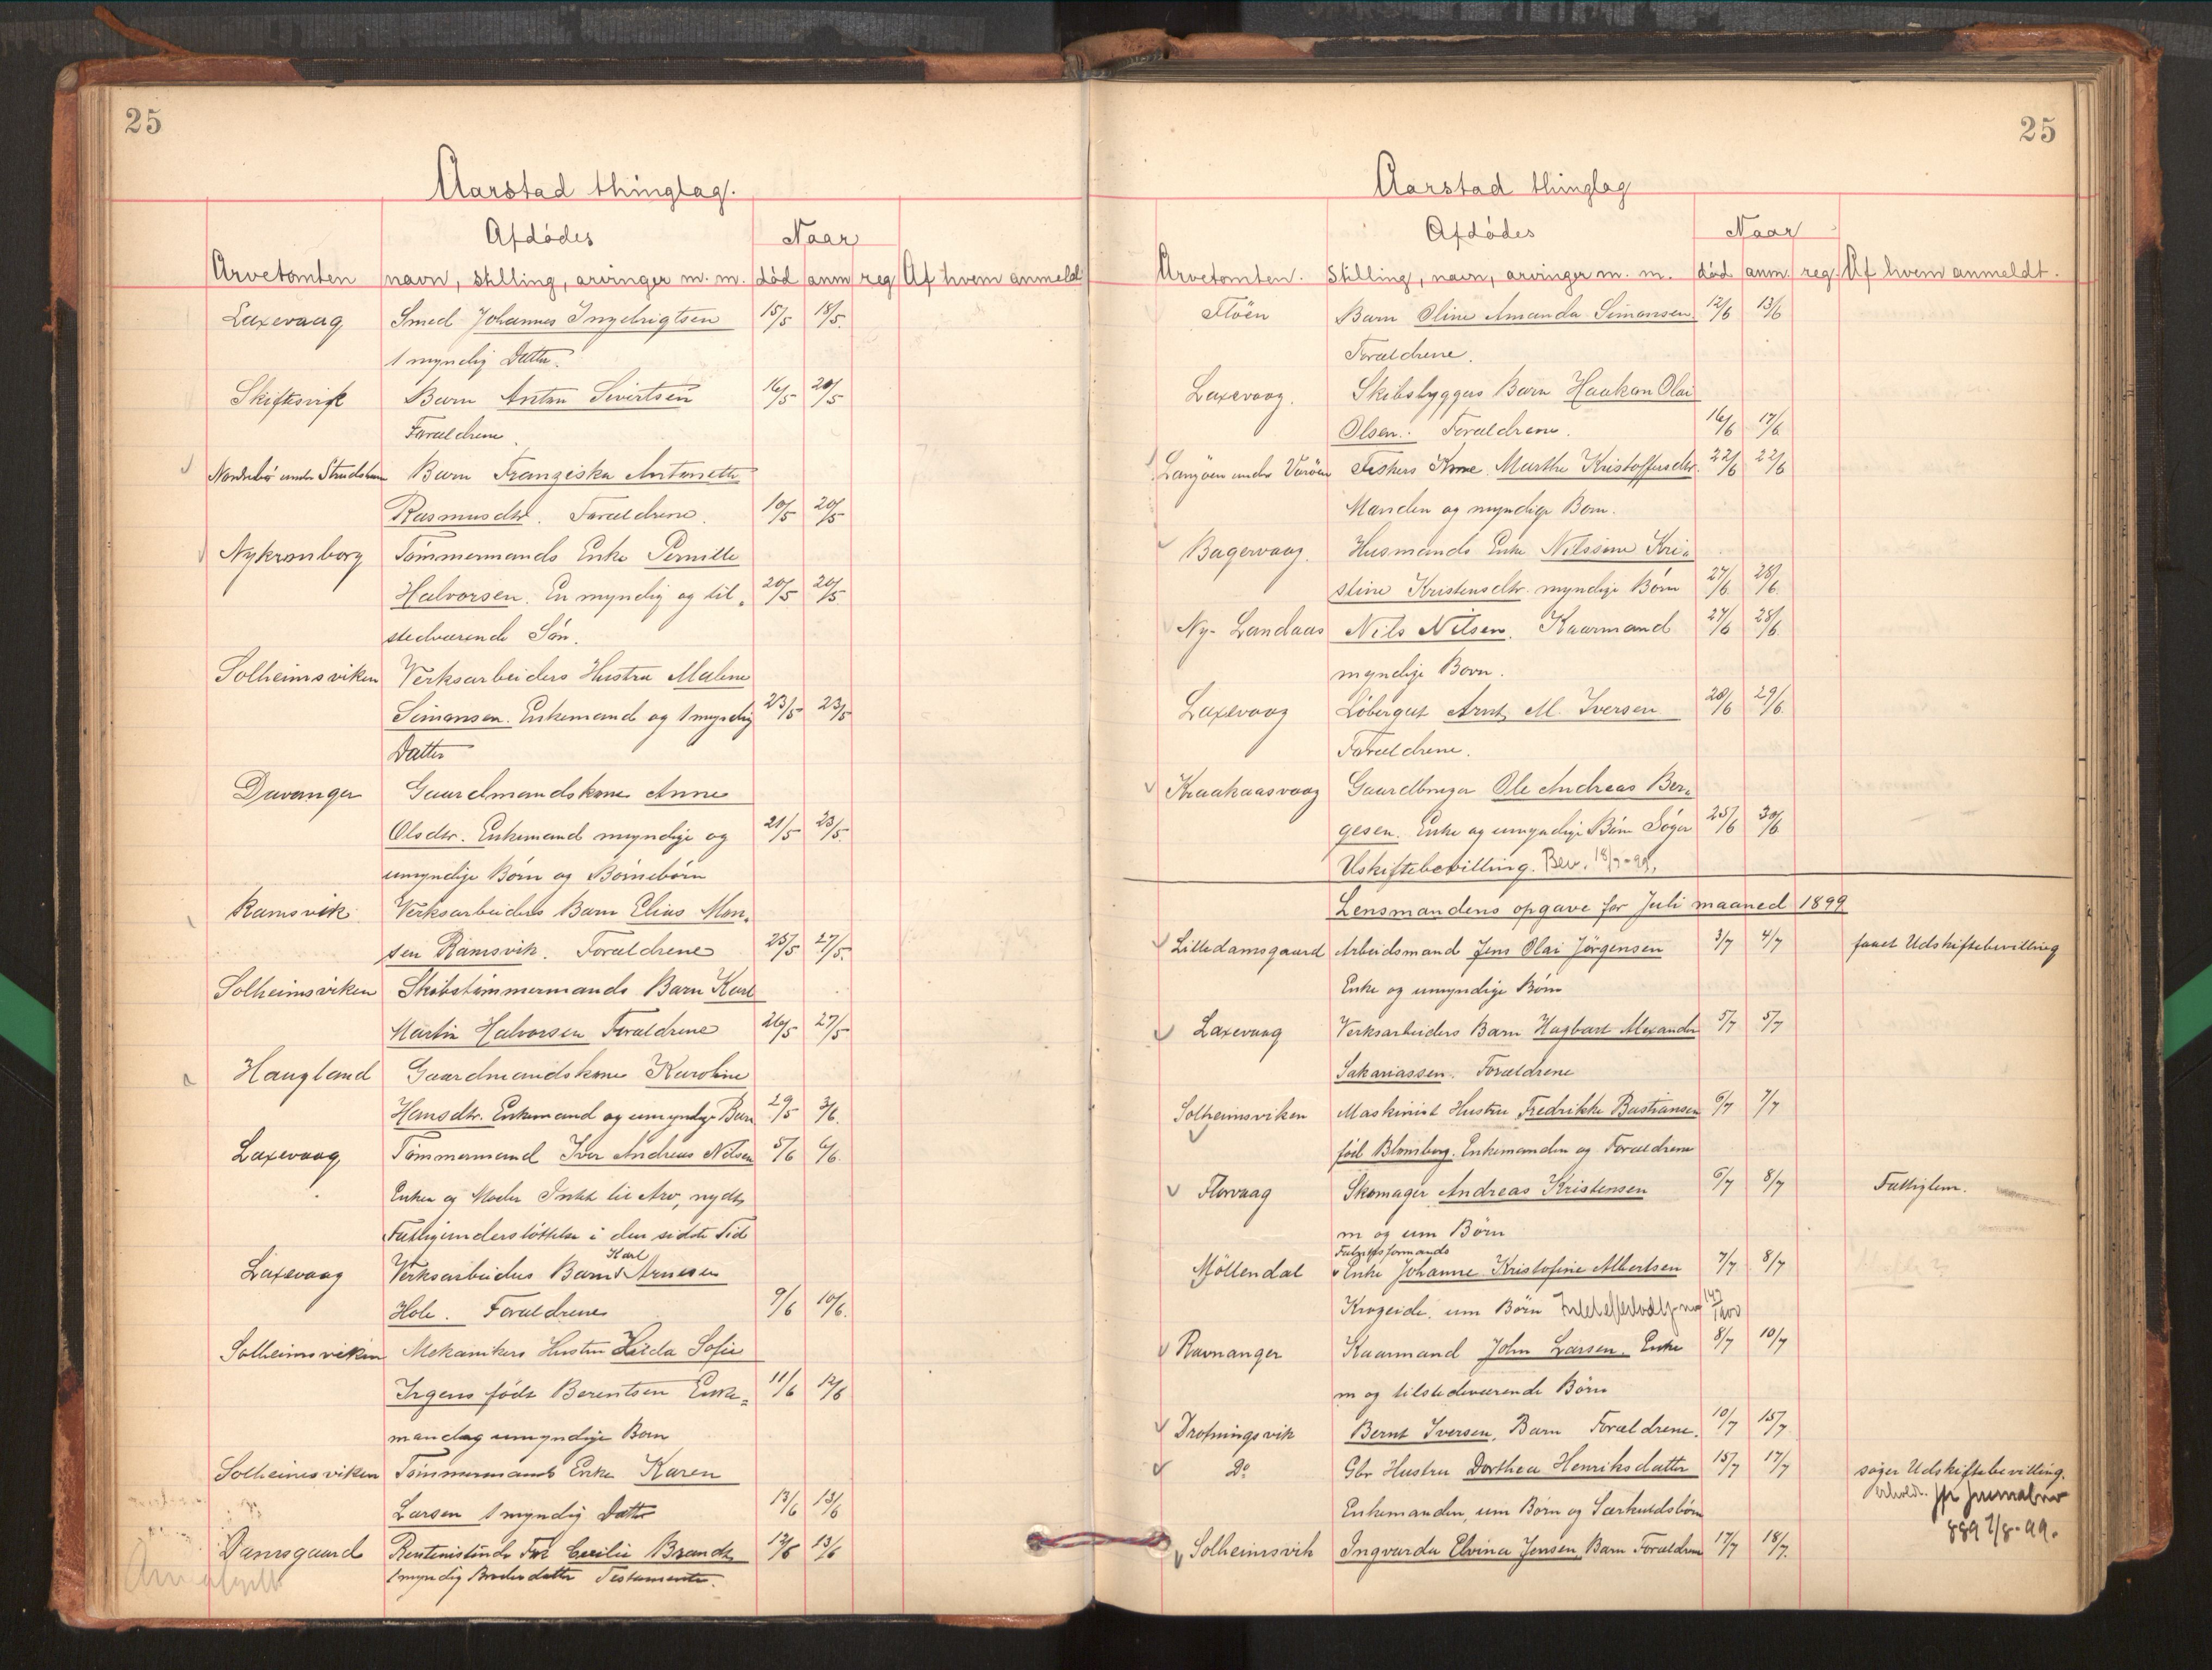 25
Aarstad thinglag.
Afdødes Naar
Arvetomten navn, stilling, arvinger m. m. død anm reg Af hvem anmeldt
Laxevaag Smed Johannes Ingebrigtsen 15/5 18/5
1 myndig Datter.
Skiftesvik Barn Anton Sivertsen 16/5 20/5
Forældrene
Nordrebø under Barn Franziska Antonette
Rasmusdtr. Forældrene. 10/5 20/5
Nykronborg Tømmermands Enke Pernille
Halvorsen. En myndig og til- 20/5 20/5
stedværende Søn.
Solheimsviken Verksarbeiders Hustru Malene
Simonsen. Enkemand og 1 myndig 23/5 23/5
Datter
Davanger Gaardmandskone Anne
Olsdtr. Enkemand myndige og 21/5 23/5
umyndige Børn og Børnebørn
Ramsvik Verksarbeiders Barn Elias Mon-
sen Ramsvik. Forældrene 25/5 27/5
Solheimsviken Skibstømmermands Barn Karl
Martin Halvorsen Forældrene 26/5 27/5
Haugland Gaardmandskone Karoline
Hansdtr. Enkemand og umyndige Barn 29/5 3/6
Laxevaag Tømmermand Iver Andreas Nilsen 5/6 6/6
Enken og Moder Intet til Arv, nydt
Fattigunderstøttelse i den sidste Tid
Laxevaag Verksarbeiders Barn Karl Arnesen
Hole. Forældrene 9/6 10/6
Solheimsviken Mekanikers Hustru Hilda Sofie
Irgens født Berentsen Enke- 11/6 12/6
mand og umyndige Born
Solheimsviken Tømmermands Enke Karen
Larsen 1 myndig Datter 13/6 13/6
Damsgaard Rentenistinde Frk Cecilie Brandt 12/6 13/6
1 myndig Broderdatter Testamente.
25
Aarstad thinglag
Afdødes Naar
Arvetomten. Stilling, navn, arvinger m. m. død anm. reg. Af hvem anmeldt.
Fløen Barn Oline Amanda Simonsen 12/6 13/6
Forældrene.
Laxevaag. Skibsbyggers Barn Haakon Olai
Olsen. Forældrene. 16/6 17/6
Langøen under Fiskers Kone Marthe Kristoffersdtr. 22/6 22/6
Manden og myndige Børn.
Bagervaag. Husmands Enke Nilssine Kri-
stine Kristensdtr. myndige Børn 27/6 28/6
Ny-Landaas Nils Nilsen. Kaarmand 27/6 28/6
myndige Børn.
Laxevaag Løbergut Arnt M. Iversen 28/6 29/6
Forældrene.
Kraakaasvaag Gaardbruger Ole Andreas Ber-
gesen. Enke og umyndige Børn Søger 25/6 30/6
Uskiftebevilling. Bev. 18/7-99.
Lensmandens opgave for Juli maaned 1899
Lilledamsgaard Arbeidsmand Jens Olai Jørgensen 3/7 4/7 faaet Udskiftebevilling
Enke og umyndige Børn
Laxevaag Verksarbeiders Barn Hagbart Alexander 5/7 5/7
Sakariassen. Forældrene
Solheimsviken Maskinist Hustru Fredrikke Bastiansen 6/7 7/7
født Blomberg. Enkemanden og Forældrene
Florvaag Skomager Andreas Kristensen 6/7 8/7 Fattiglem.
m og um Børn
Møllendal Enke Johanne Kristofine Albertsen 7/7 8/7
Krogeide. um Børn
Ravnanger Kaarmand John Larsen. Enke 8/7 10/7
m og tilstedeværende Børn
Drotningsvik Bernt Iversen, Barn Forældrene. 10/7 15/7
Do Gbr Hustru Dorthea Henriksdatter 15/7 17/7 søger Udskiftebevilling.
erholdt. Jfr Journalnr
Enkemanden, um Børn og Særkuldsbørn
889 7/8-99.
Solheimsvik Ingvarda Elvina Jensen, Barn Forældrene 17/7 18/7